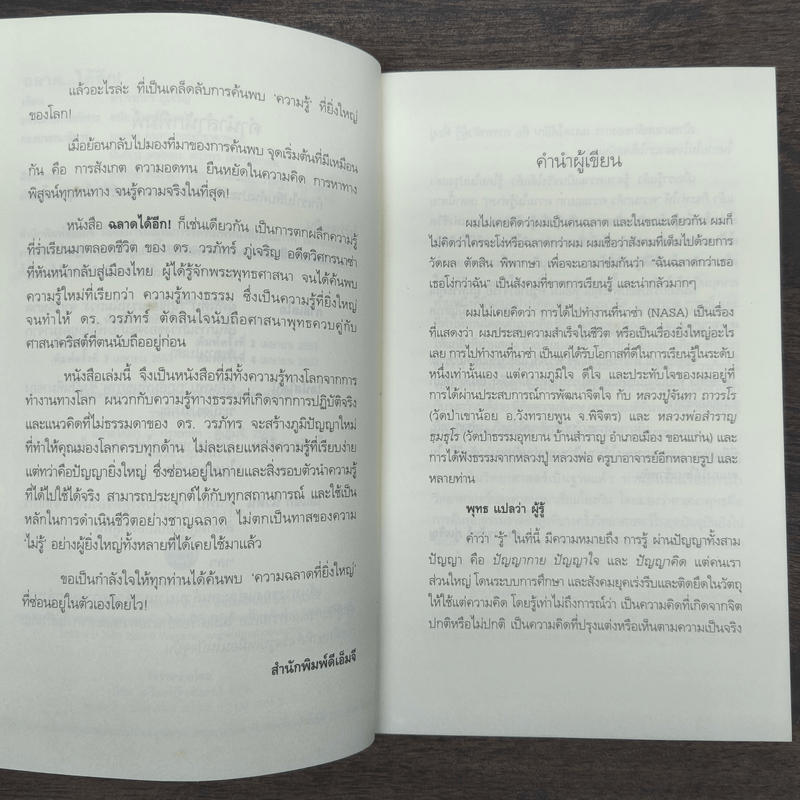 แล้วอะไรล่ะ ที่เป็นเคล็ดลับการค้นพบ 'ความรู้' ที่ยิ่งใหญ่
ของโลก!
เมื่อย้อนกลับไปมองที่มาของการค้นพบ จุดเริ่มต้นที่มีเหมือน
กัน คือ การสังเกต ความอดทน ยืนหยัดในความคิด การหาทาง
พิสูจน์ทุกหนทาง จนรู้ความจริงในที่สุด!
หนังสือ ฉลาดได้อีก! ก็เช่นเดียวกัน เป็นการตกผลึกความรู้
ที่ร่ำเรียนมาตลอดชีวิต ของ ดร. วรภัทร์ ภู่เจริญ อดีตวิศกรนาซ่า
ที่หันหน้ากลับสู่เมืองไทย ผู้ได้รู้จักพระพุทธศาสนา จนได้ค้นพบ
ความรู้ใหม่ที่เรียกว่า ความรู้ทางธรรม ซึ่งเป็นความรู้ที่ยิ่งใหญ่
จนทำให้ ดร. วรภัทร์ ตัดสินใจนับถือศาสนาพุทธควบคู่กับ
ศาสนาคริสต์ที่ตนนับถืออยู่ก่อน
หนังสือเล่มนี้ จึงเป็นหนังสือที่มีทั้งความรู้ทางโลกจากการ
ทำงานทางโลก ผนวกกับความรู้ทางธรรมที่เกิดจากการปฏิบัติจริง
และแนวคิดที่ไม่ธรรมดาของ ดร. วรภัทร จะสร้างภูมิปัญญาใหม่
ที่ทำให้คุณมองโลกครบทุกด้าน ไม่ละเลยแหล่งความรู้ที่เรียบง่าย
แต่ทว่าคือปัญญายิ่งใหญ่ ซึ่งซ่อนอยู่ในกายและสิ่งรอบตัวนำความรู้
ที่ได้ไปใช้ได้จริง สามารถประยุกต์ได้กับทุกสถานการณ์ และใช้เป็น
หลักในการดำเนินชีวิตอย่างชาญฉลาด ไม่ตกเป็นทาสของความ
'ไม่รู้' อย่างผู้ยิ่งใหญ่ทั้งหลายที่ได้เคยใช้มาแล้ว
ขอเป็นกำลังใจให้ทุกท่านได้ค้นพบ 'ความฉลาดที่ยิ่งใหญ่'
ที่ซ่อนอยู่ในตัวเองโดยไว!
สำนักพิมพ์ดีเอ็มจี
คำนำผู้เขียน
ผมไม่เคยคิดว่าผมเป็นคนฉลาด และในขณะเดียวกัน ผมก็
ไม่คิดว่าใครจะโง่หรือฉลาดกว่าผม ผมเชื่อว่าสังคมที่เต็มไปด้วยการ
วัดผล ตัดสิน พิพากษา เพื่อจะเอามาข่มกันว่า "ฉันฉลาดกว่าเธอ
เธอโง่กว่าฉัน" เป็นสังคมที่ขาดการเรียนรู้ และน่ากลัวมากๆ
ผมไม่เคยคิดว่า การได้ไปทำงานที่นาซ่า (NASA) เป็นเรื่อง
ที่แสดงว่า ผมประสบความสำเร็จในชีวิต หรือเป็นเรื่องยิ่งใหญ่อะไร
เลย การไปทำงานที่นาซ่า เป็นแค่ได้รับโอกาสที่ดีในการเรียนรู้ในระดับ
หนึ่งเท่านั้นเอง แต่ความภูมิใจ ดีใจ และประทับใจของผมอยู่ที่
การได้ผ่านประสบการณ์การพัฒนาจิตใจ กับ หลวงปู่จันทา ถาวรโร
(วัดป่าเขาน้อย อ.วังทรายพูน จ.พิจิตร) และ หลวงพ่อสำราญ
ธมฺมธุโร (วัดป่าธรรมอุทยาน บ้านสำราญ อำเภอเมือง ขอนแก่น) และ
การได้ฟังธรรมจากหลวงปู่ หลวงพ่อ ครูบาอาจารย์อีกหลายรูป และ
หลายท่าน
พุทธ แปลว่า ผู้รู้
คำว่า "รู้" ในที่นี้ มีความหมายถึง การรู้ ผ่านปัญญาทั้งสาม
ปัญญา คือ ปัญญากาย ปัญญาใจ และ ปัญญาคิด แต่คนเรา
ส่วนใหญ่ โดนระบบการศึกษา และสังคมยุคเร่งรีบและติดยึดในวัตถุ
ให้ใช้แต่ความคิด โดยรู้เท่าไม่ถึงการณ์ว่า เป็นความคิดที่เกิดจากจิต
ปกติหรือไม่ปกติ เป็นความคิดที่ปรุงแต่งหรือเห็นตามความเป็นจริง